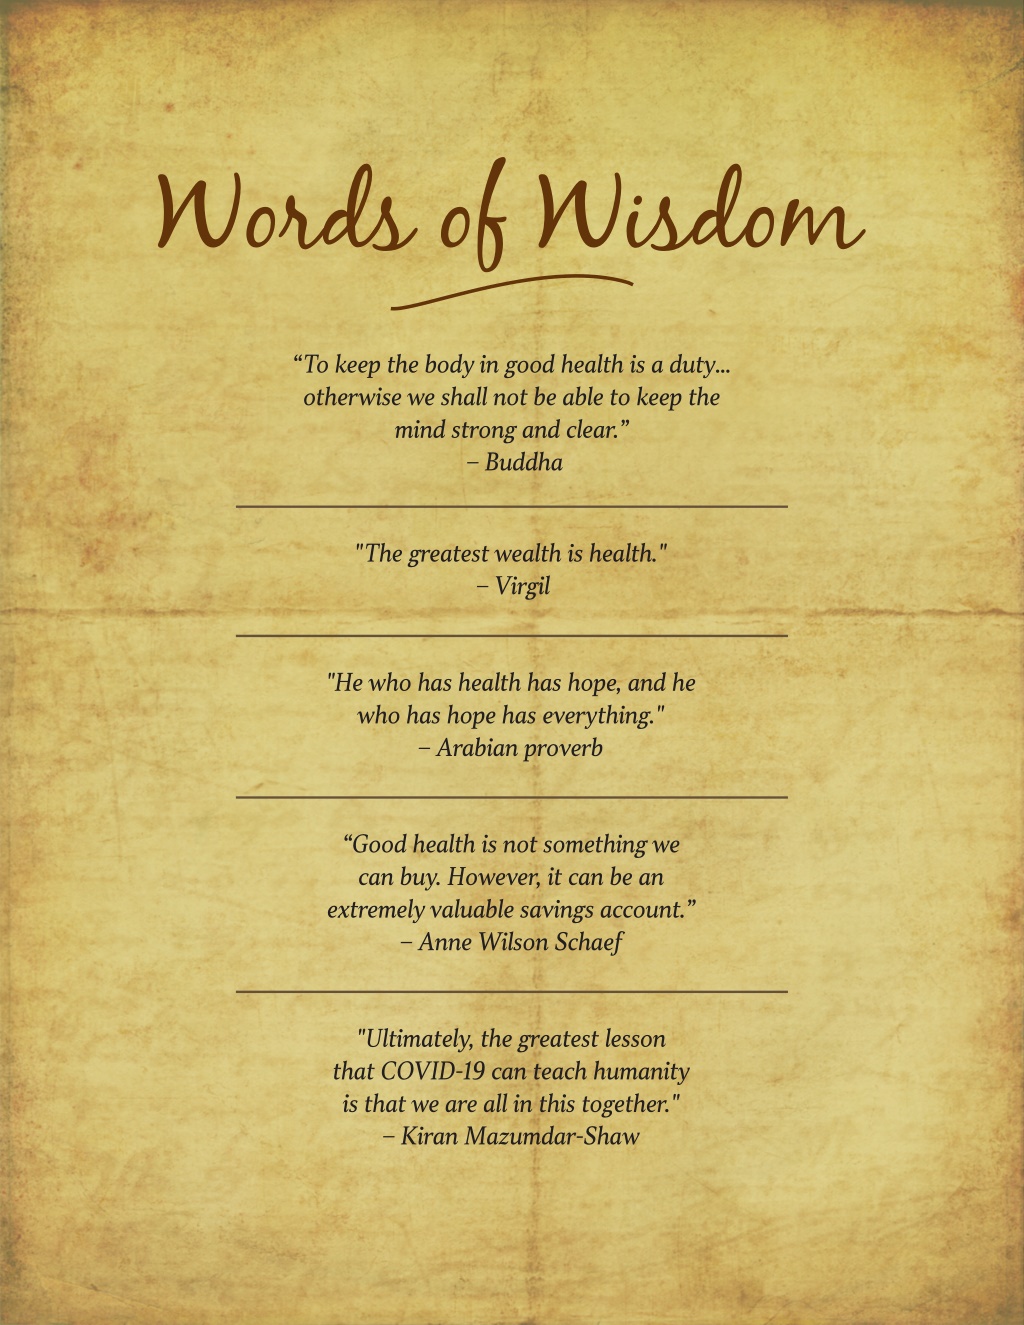 Words of Wisdom
“To keep the body in good health is a duty...
otherwise we shall not be able to keep the
mind strong and clear.”
– Buddha
"The greatest wealth is health."
– Virgil
"He who has health has hope, and he
who has hope has everything."
– Arabian proverb
“Good health is not something we
can buy. However, it can be an
extremely valuable savings account.”
– Anne Wilson Schaef
"Ultimately, the greatest lesson
that COVID-19 can teach humanity
is that we are all in this together."
– Kiran Mazumdar-Shaw